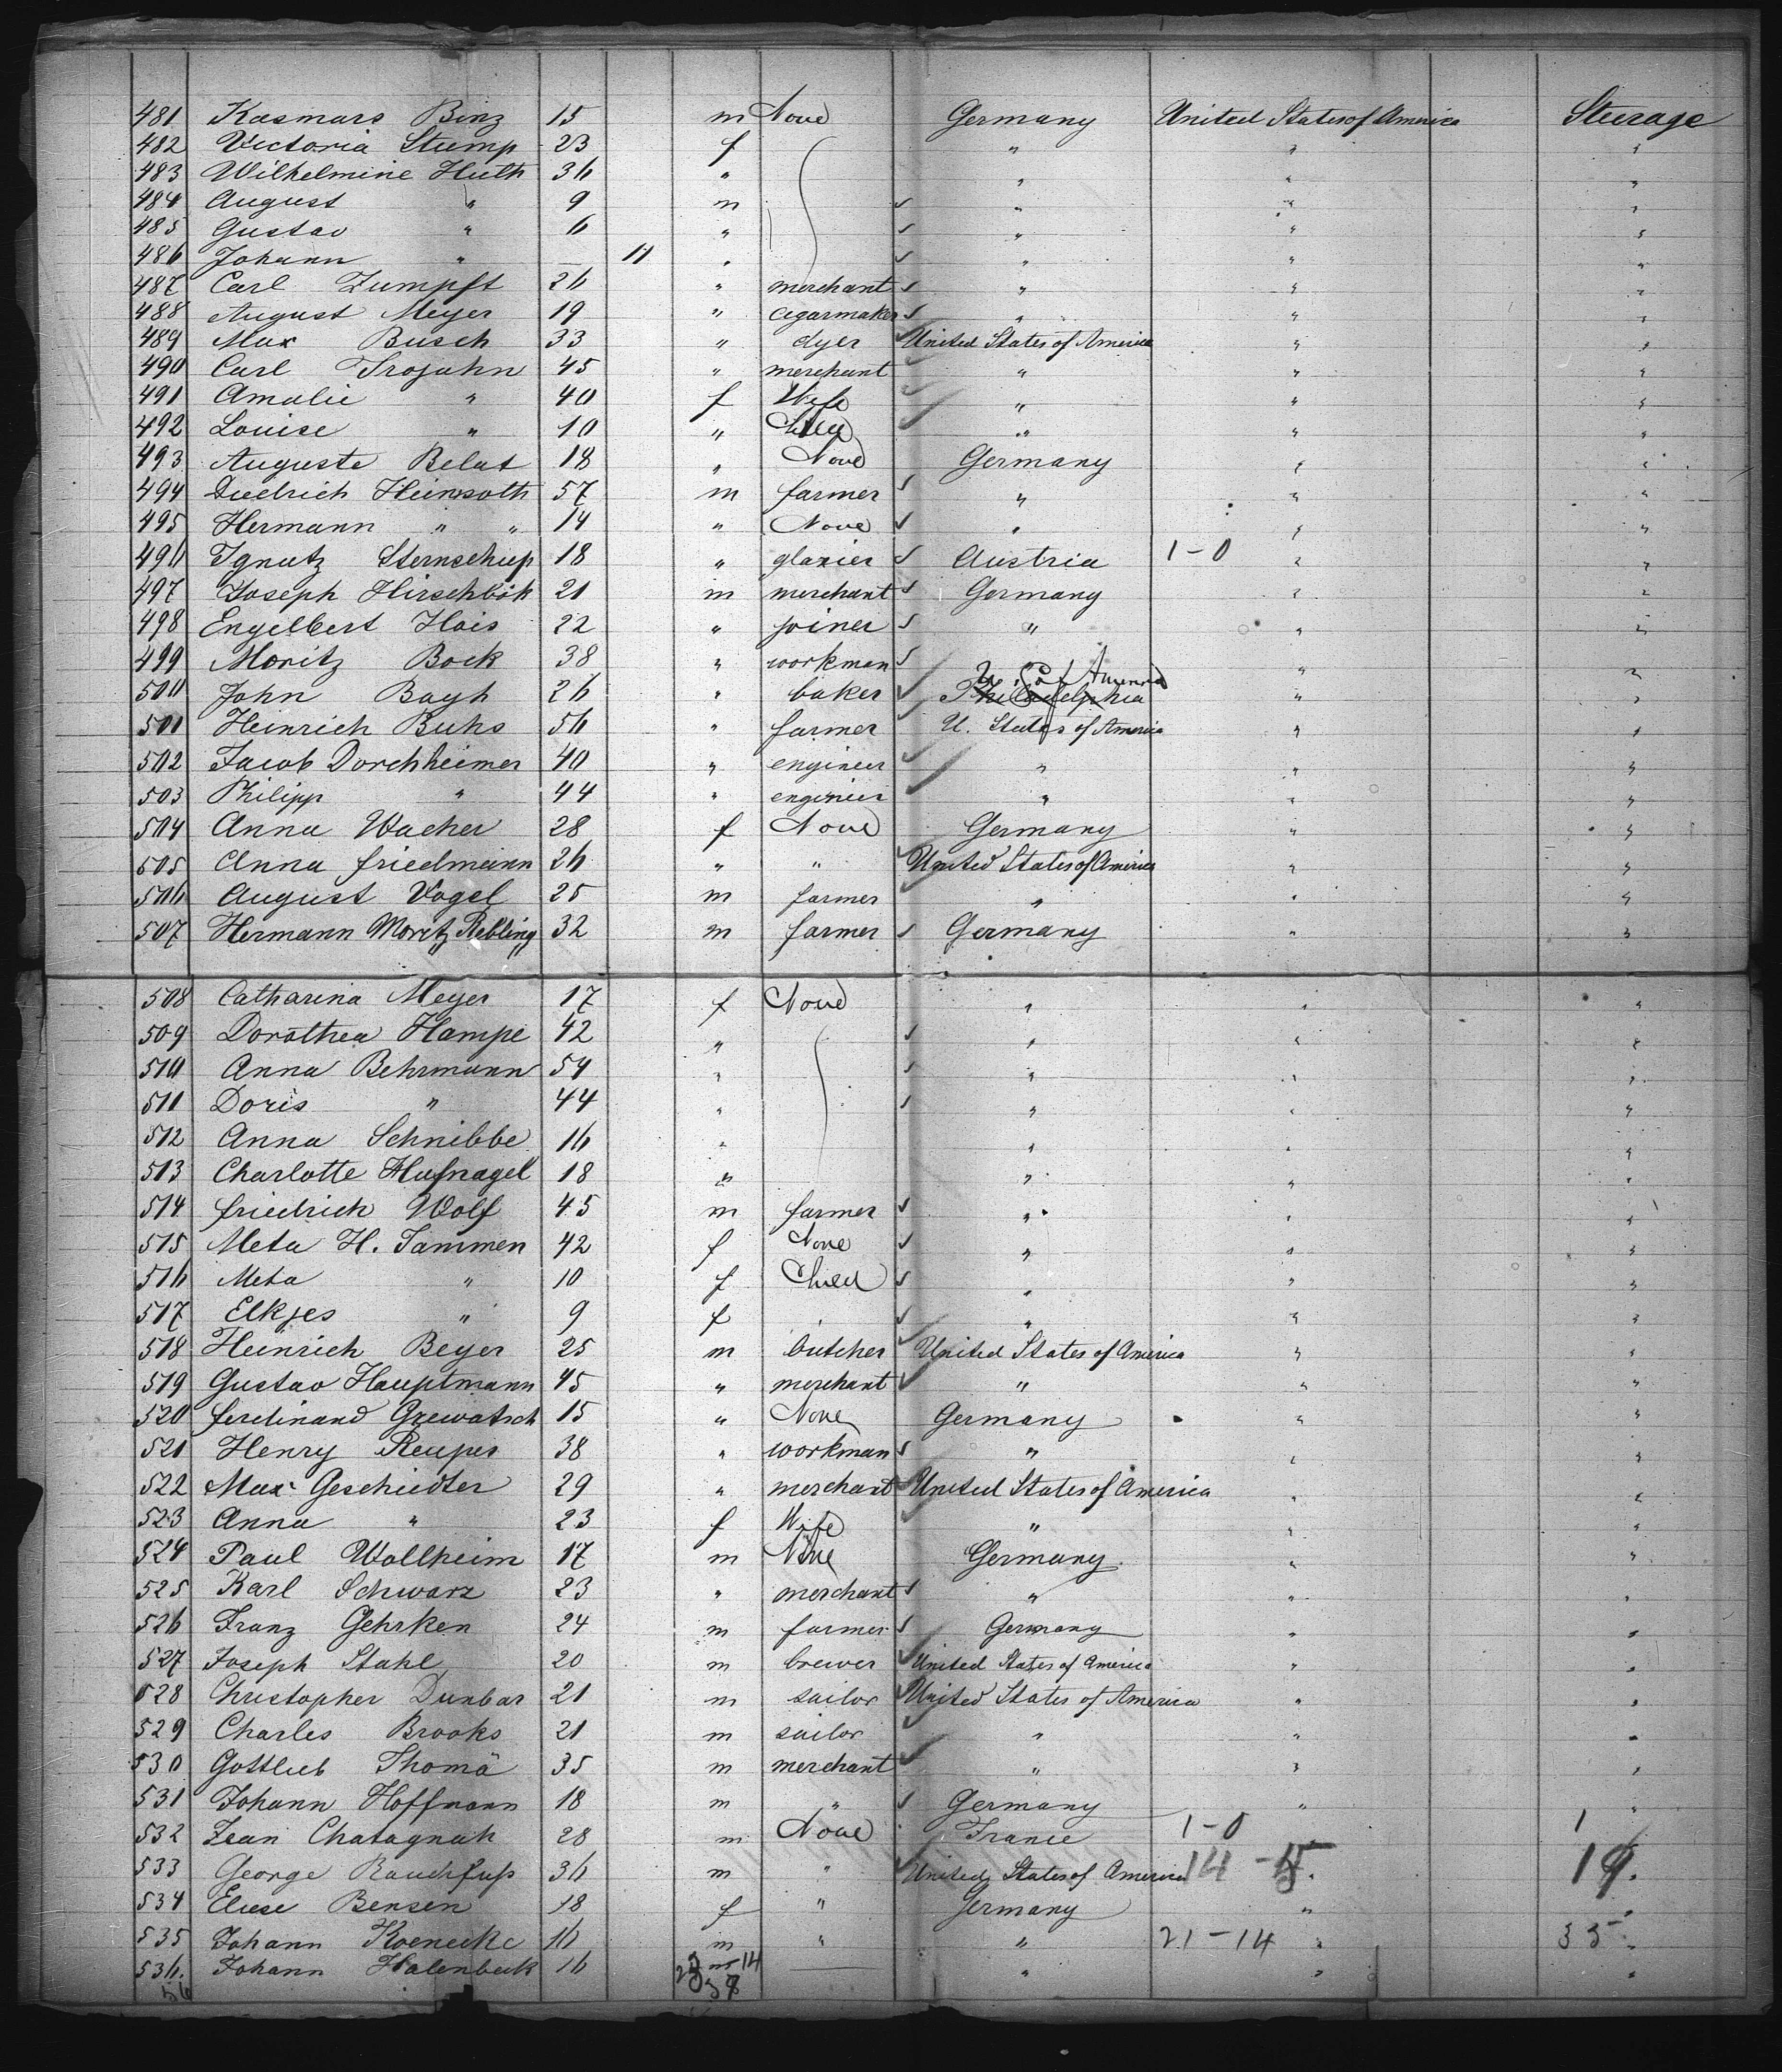 481 Kosmars Binz 15 m None Germany United States of America Steerage
482 Victoria Stump 23 f " " "
483 Wilhelmine Huth 36 " " " "
484 August " 9 m " " "
485 Gustav " 6 " " " "
486 Johann " — 11 " " " "
487 Carl Zumpft 26 " merchant " " "
488 August Meyer 19 " cigarmaker " " "
489 Max Busch 33 " dyer United States of America " "
490 Carl Trojahn 45 " merchant " " "
491 Amalie " 40 f Wife " " "
492 Louise " 10 " Child " " "
493 Auguste Belat 18 " None Germany " "
494 Diedrich Heinsoth 57 m farmer " " "
495 Hermann " " 14 " None " " "
496 Ignatz Sternschup 18 " glazier Austria 1-0 " "
497 Joseph Hirschböh 21 m merchant Germany " "
498 Engelbert Hois 22 " joiner " " "
499 Moritz Bock 38 " workman " "
500 John Bayh 26 " baker Philadelphia U. S. of America " "
501 Heinrich Buhs 56 " farmer U. States of America " "
502 Jacob Dorchheimer 40 " engineer " " "
503 Philipp " 44 " engineer " " "
504 Anna Wacher 28 f None Germany " "
505 Anna Friedmann 26 " " United States of America " "
506 August Vogel 25 m farmer " " "
507 Hermann Moritz Rebling 32 m farmer Germany " "
508 Catharina Meyer 17 f None " " "
509 Dorothea Hampe 42 " " " "
510 Anna Behrmann 54 " " " "
511 Doris " 44 " " " "
512 Anna Schnibbe 16 " " " "
513 Charlotte Hufnagel 18 " " " "
514 Friedrich Wolf 45 m farmer " " "
515 Meta H. Tammen 42 f None " " "
516 Meta " 10 f Child " " "
517 Elkjes " 9 f " " "
518 Heinrich Beyer 25 m butcher United States of America " "
519 Gustav Hauptmann 45 " merchant " " "
520 Ferdinand Grewatsch 15 " None Germany " "
521 Henry Reupes 38 " workman " " "
522 Max Geschiedter 29 " merchant United States of America " "
523 Anna " 23 f Wife " " "
524 Paul Wollheim 17 m None Germany " "
525 Karl Schwarz 23 " merchant " " "
526 Franz Gehrken 24 m farmer Germany " "
527 Joseph Stahl 20 m brewer United States of America " "
528 Christopher Dunbar 21 m sailor United States of America " "
529 Charles Brooks 21 m sailor " " "
530 Gottlieb Thomä 35 m merchant " " "
531 Johann Hoffmann 18 m " Germany " "
532 Jean Chatagnah 28 m None France 1-0 1
533 George Rauchfuß 36 m " United States of America 14 - 5. 19.
534 Eliese Bensen 18 f " Germany " "
535 Johann Koenecke 16 m " " 21-14 " 35 "
536. Johann Halenbeck 16 m — " " "